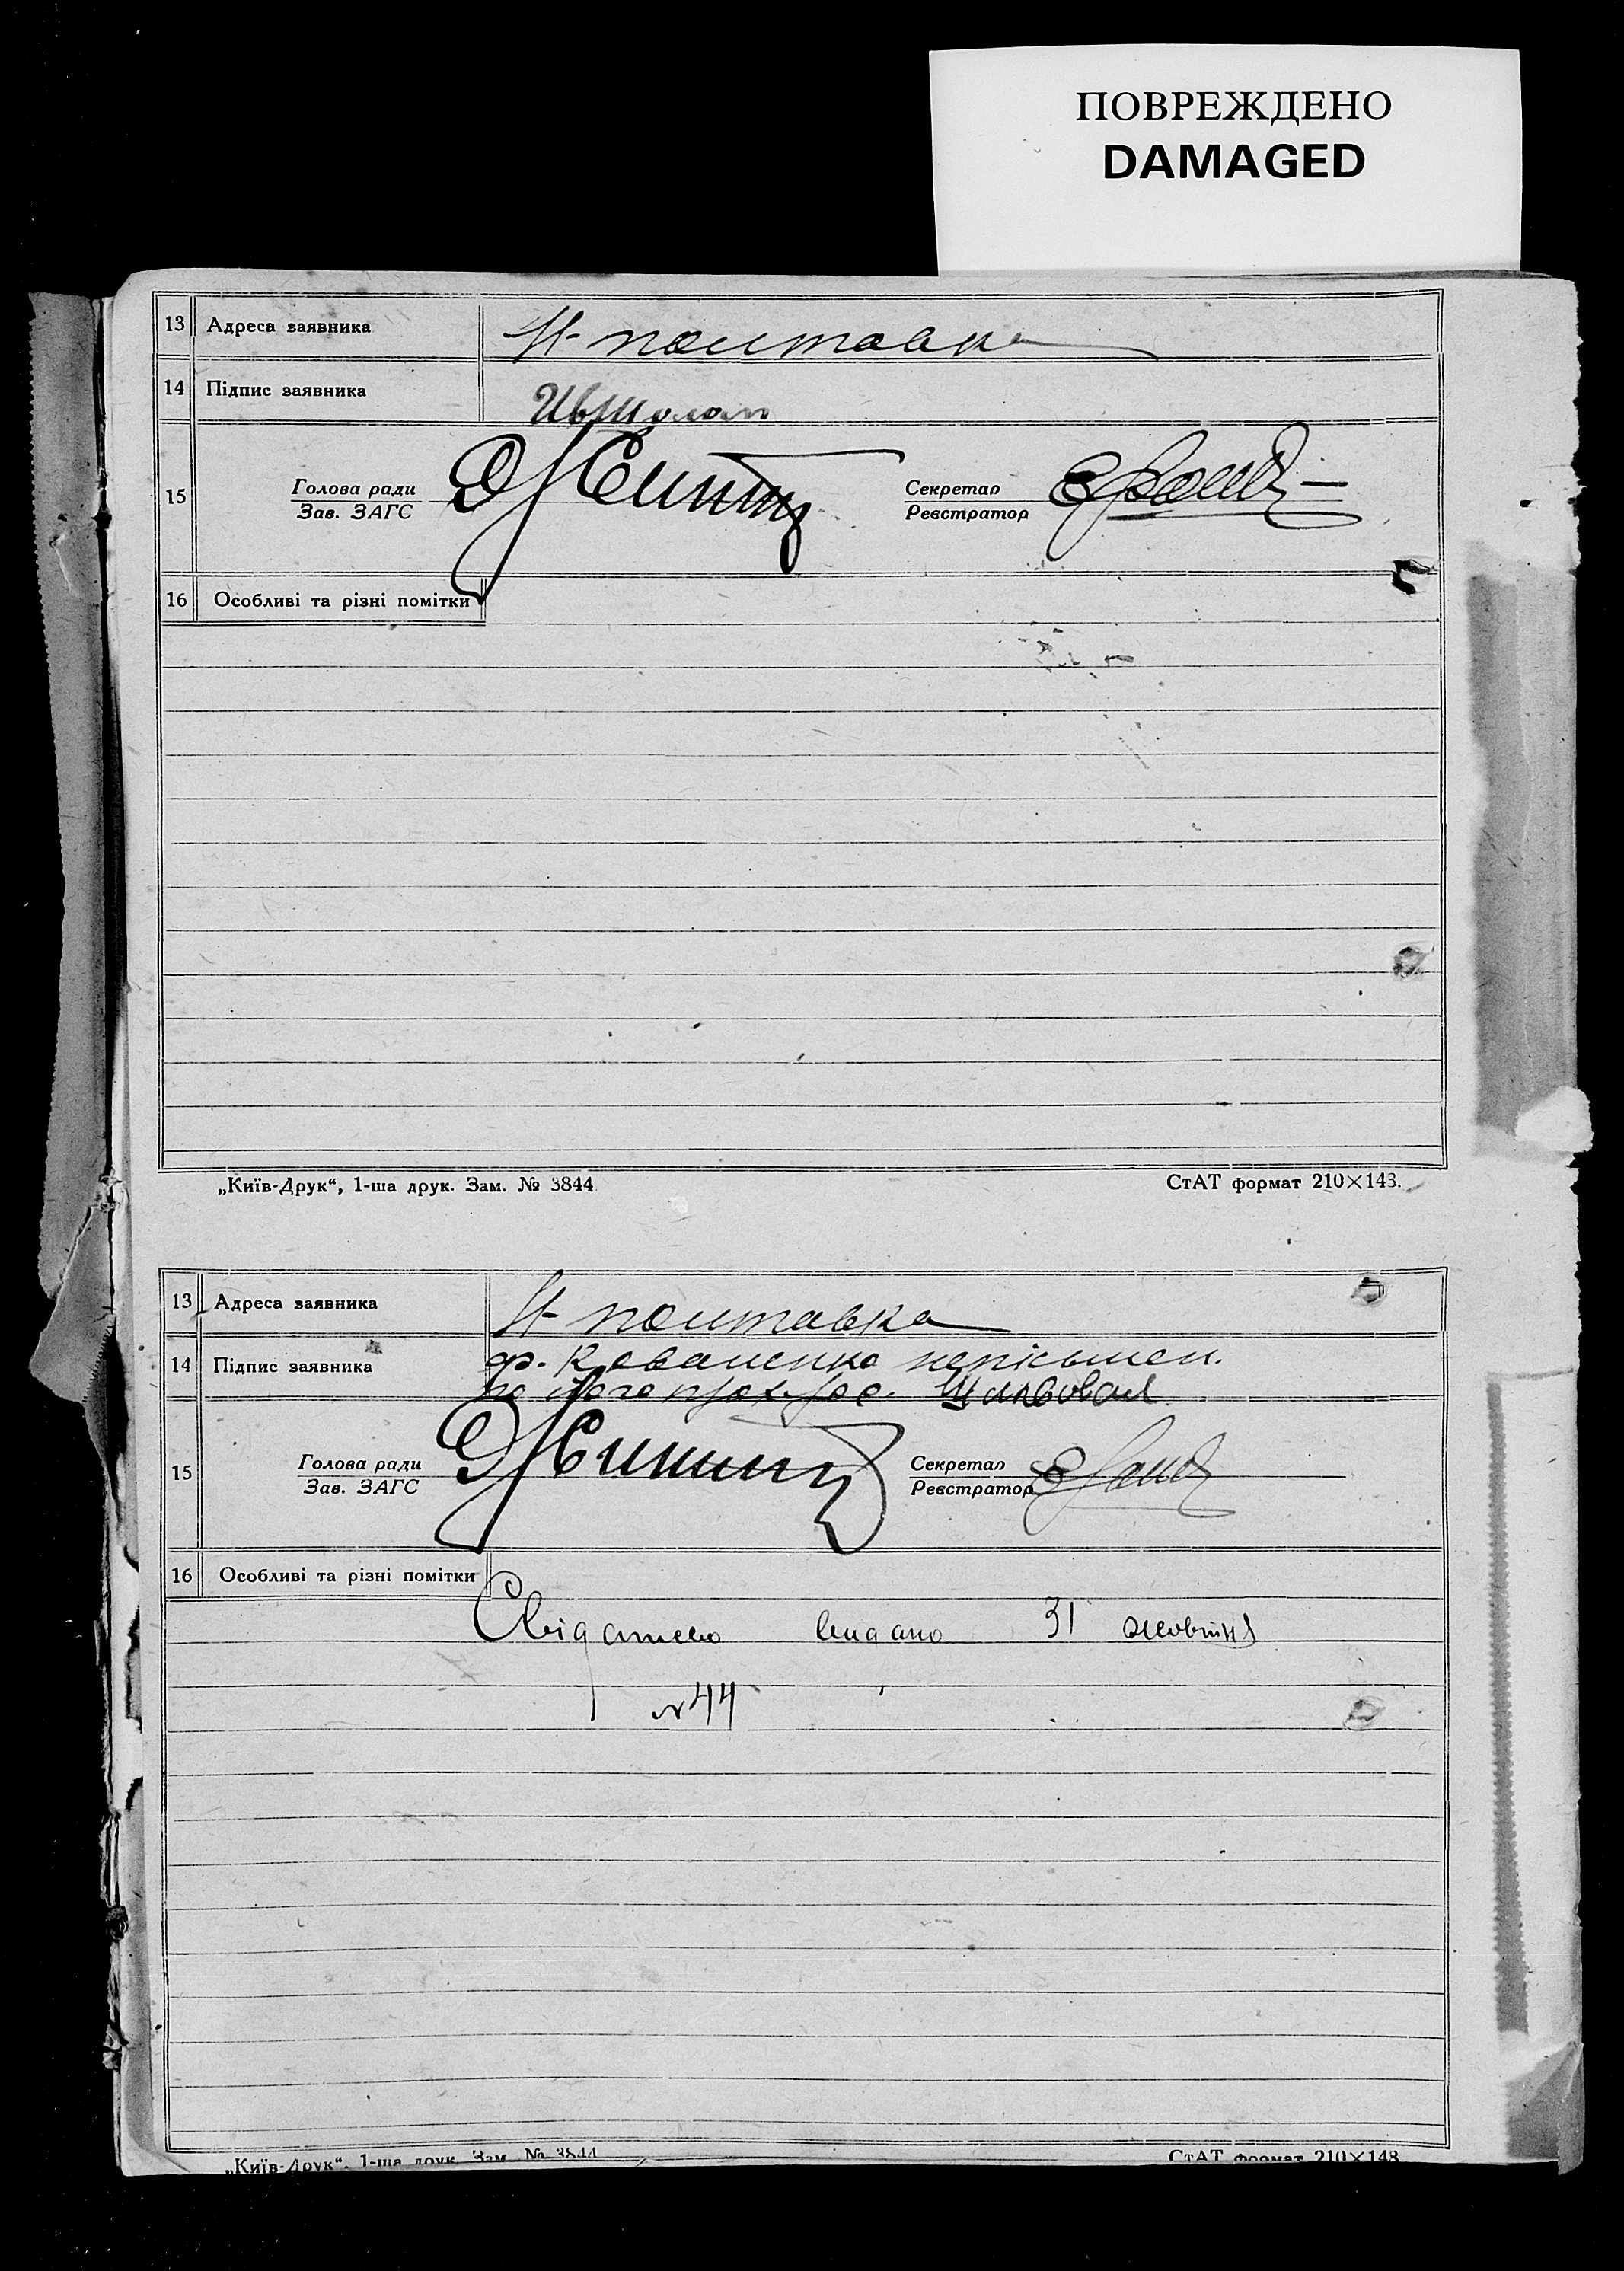 ПОВРЕЖДЕНО
DAMAGED
13 Адреса заявника Н-полтавка
14 Підпис заявника
15 Голова ради Секретар
Зав. ЗАГС Реєстратор
16 Особливі та різні помітки
„Київ-Друк“, 1-ша друк. Зам. № 3844 СтАТ формат 210×143.
13 Адреса заявника Н-полтавка
14 Підпис заявника ф. Коваленко неписьмен.
по його прох. рос.
15 Голова ради Секретар
Зав. ЗАГС Реєстратор
16 Особливі та різні помітки
Свідоцтво видано 31 жовтня
№ 44
„Київ-Друк“, 1-ша друк. Зам. № 3844 СтАТ формат 210×148